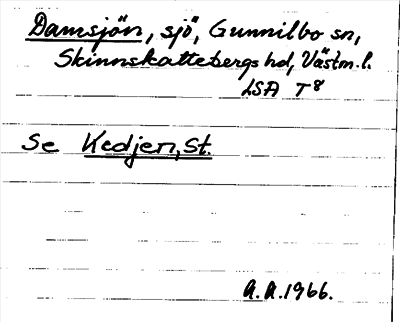 Damsjön, sjö, Gunnilbo sn,
Skinnskattebergs hd, Västm.l.
LSA T8
Se Kedjen, St.
A.A.1966.